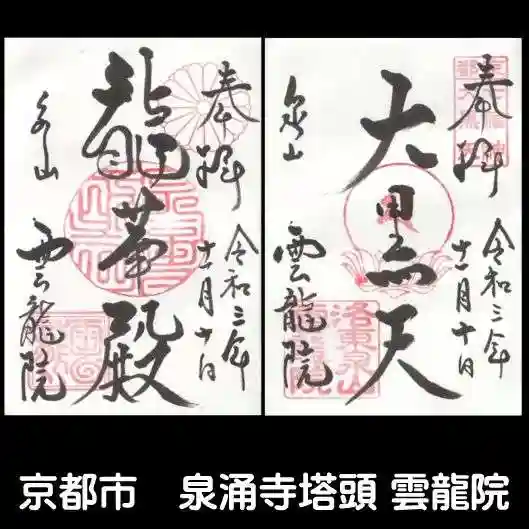 奉拝
令和三年
十一月十日
龍華殿
泉山
雲龍院
奉拝
令和三年
十一月十日
大黒天
泉山
雲龍院
洛東泉山
京都市 泉涌寺塔頭 雲龍院